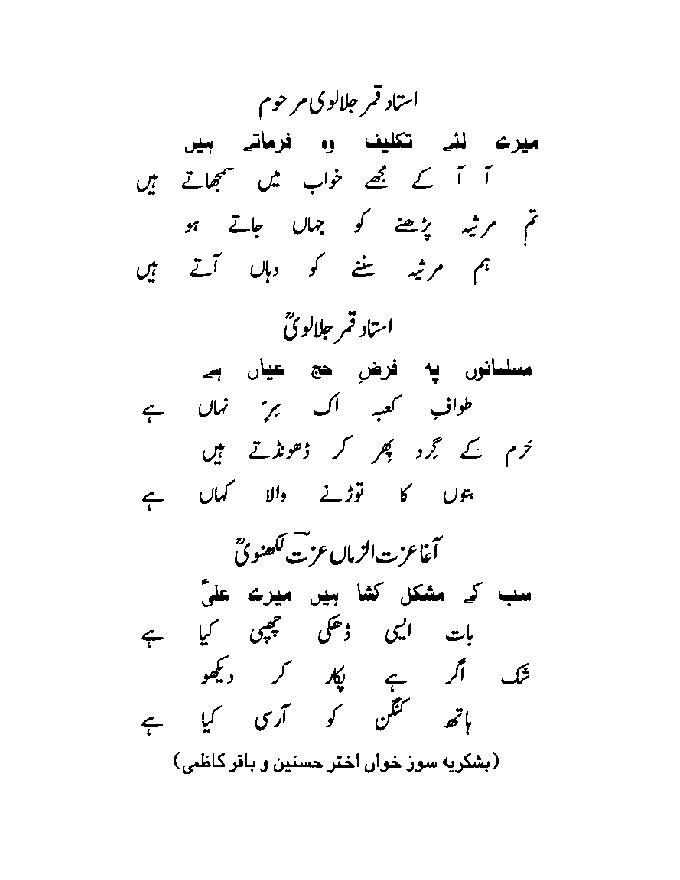 استاد قمر جلالوی مرحوم
میرے لئے تکلیف وہ فرماتے ہیں
آ آ کے مجھے خواب میں سمجھاتے ہیں
تم مرثیہ پڑھنے کو جہاں جاتے ہو
ہم مرثیہ سننے کو وہاں آتے ہیں
استاد قمر جلالویؒ
مسلمانوں پہ فرضِ حج عیاں ہے
طوافِ کعبہ اک سِرِّ نہاں ہے
حَرم کے گِرد پِھر کر ڈھونڈتے ہیں
بتوں کا توڑنے والا کہاں ہے
آغا عزت الزماں عزتؔ لکھنویؒ
سب کے مشکل کشا ہیں میرے علیؑ
بات ایسی ڈھکی چھپی کیا ہے
شک اگر ہے پکار کر دیکھو
ہاتھ کنگن کو آرسی کیا ہے
(بشکریہ سوز خواں اختر حسنین و باقر کاظمی)